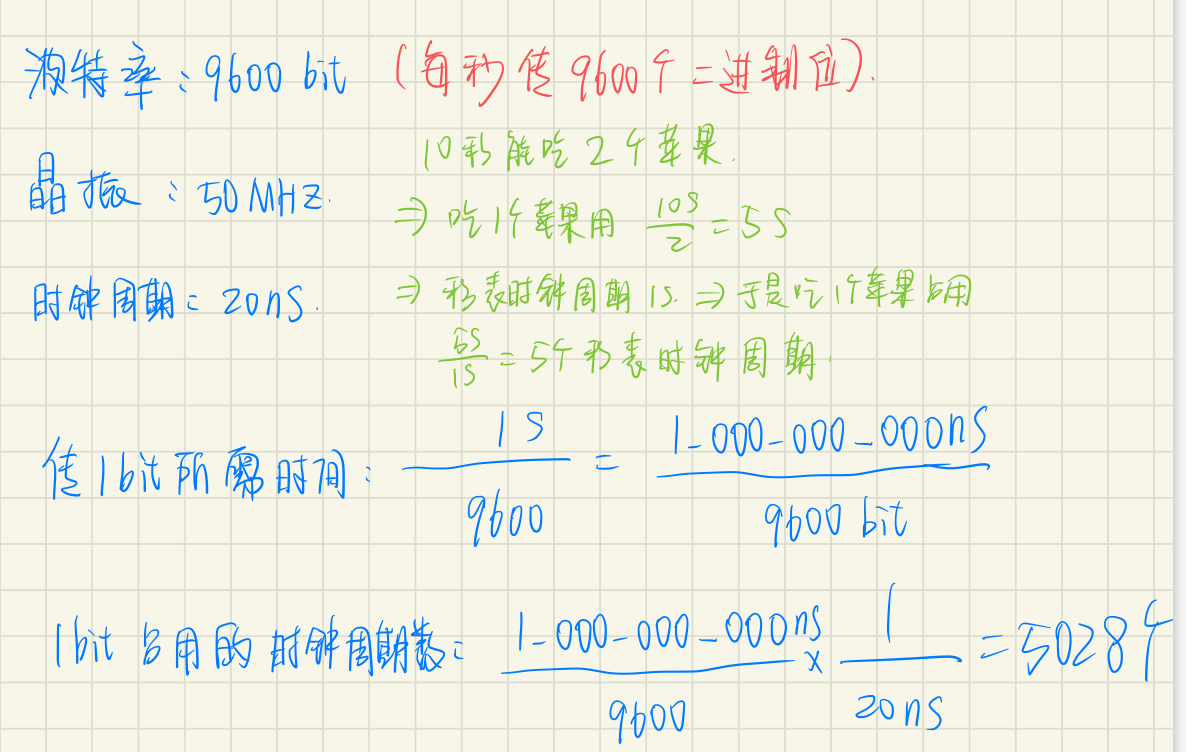 波特率：9600 bit （每秒传9600个二进制位）.
10秒能吃2个苹果.
晶振：50MHZ.
⇒ 吃1个苹果用 10S/2 = 5S
时钟周期：20ns.
⇒ 秒表时钟周期1S. ⇒ 于是吃1个苹果占用
5S/1S = 5个秒表时钟周期.
传1bit所需时间： 1S/9600 = 1-000-000-000ns/9600 bit
1bit占用的时钟周期数： 1-000-000-000ns/9600 × 1/20ns = 5028个